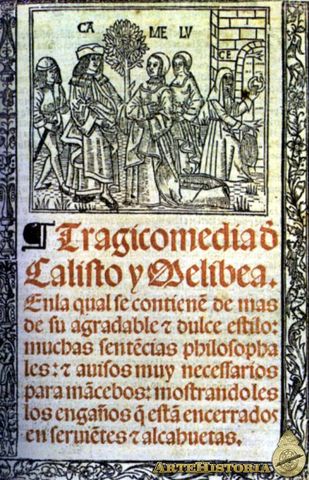 CA ME LV
CE
¶ Tragicomedia đ
Calisto y Melibea.
Enla qual se contienẽ de mas
de su agradable ⁊ dulce estilo:
muchas sentẽcias philosopha
les: ⁊ auisos muy necessarios
para mãcebos: mostrandoles
los engaños q̃ estã encerrados
en seruiẽtes ⁊ alcahuetas.
ARTEHISTORIA